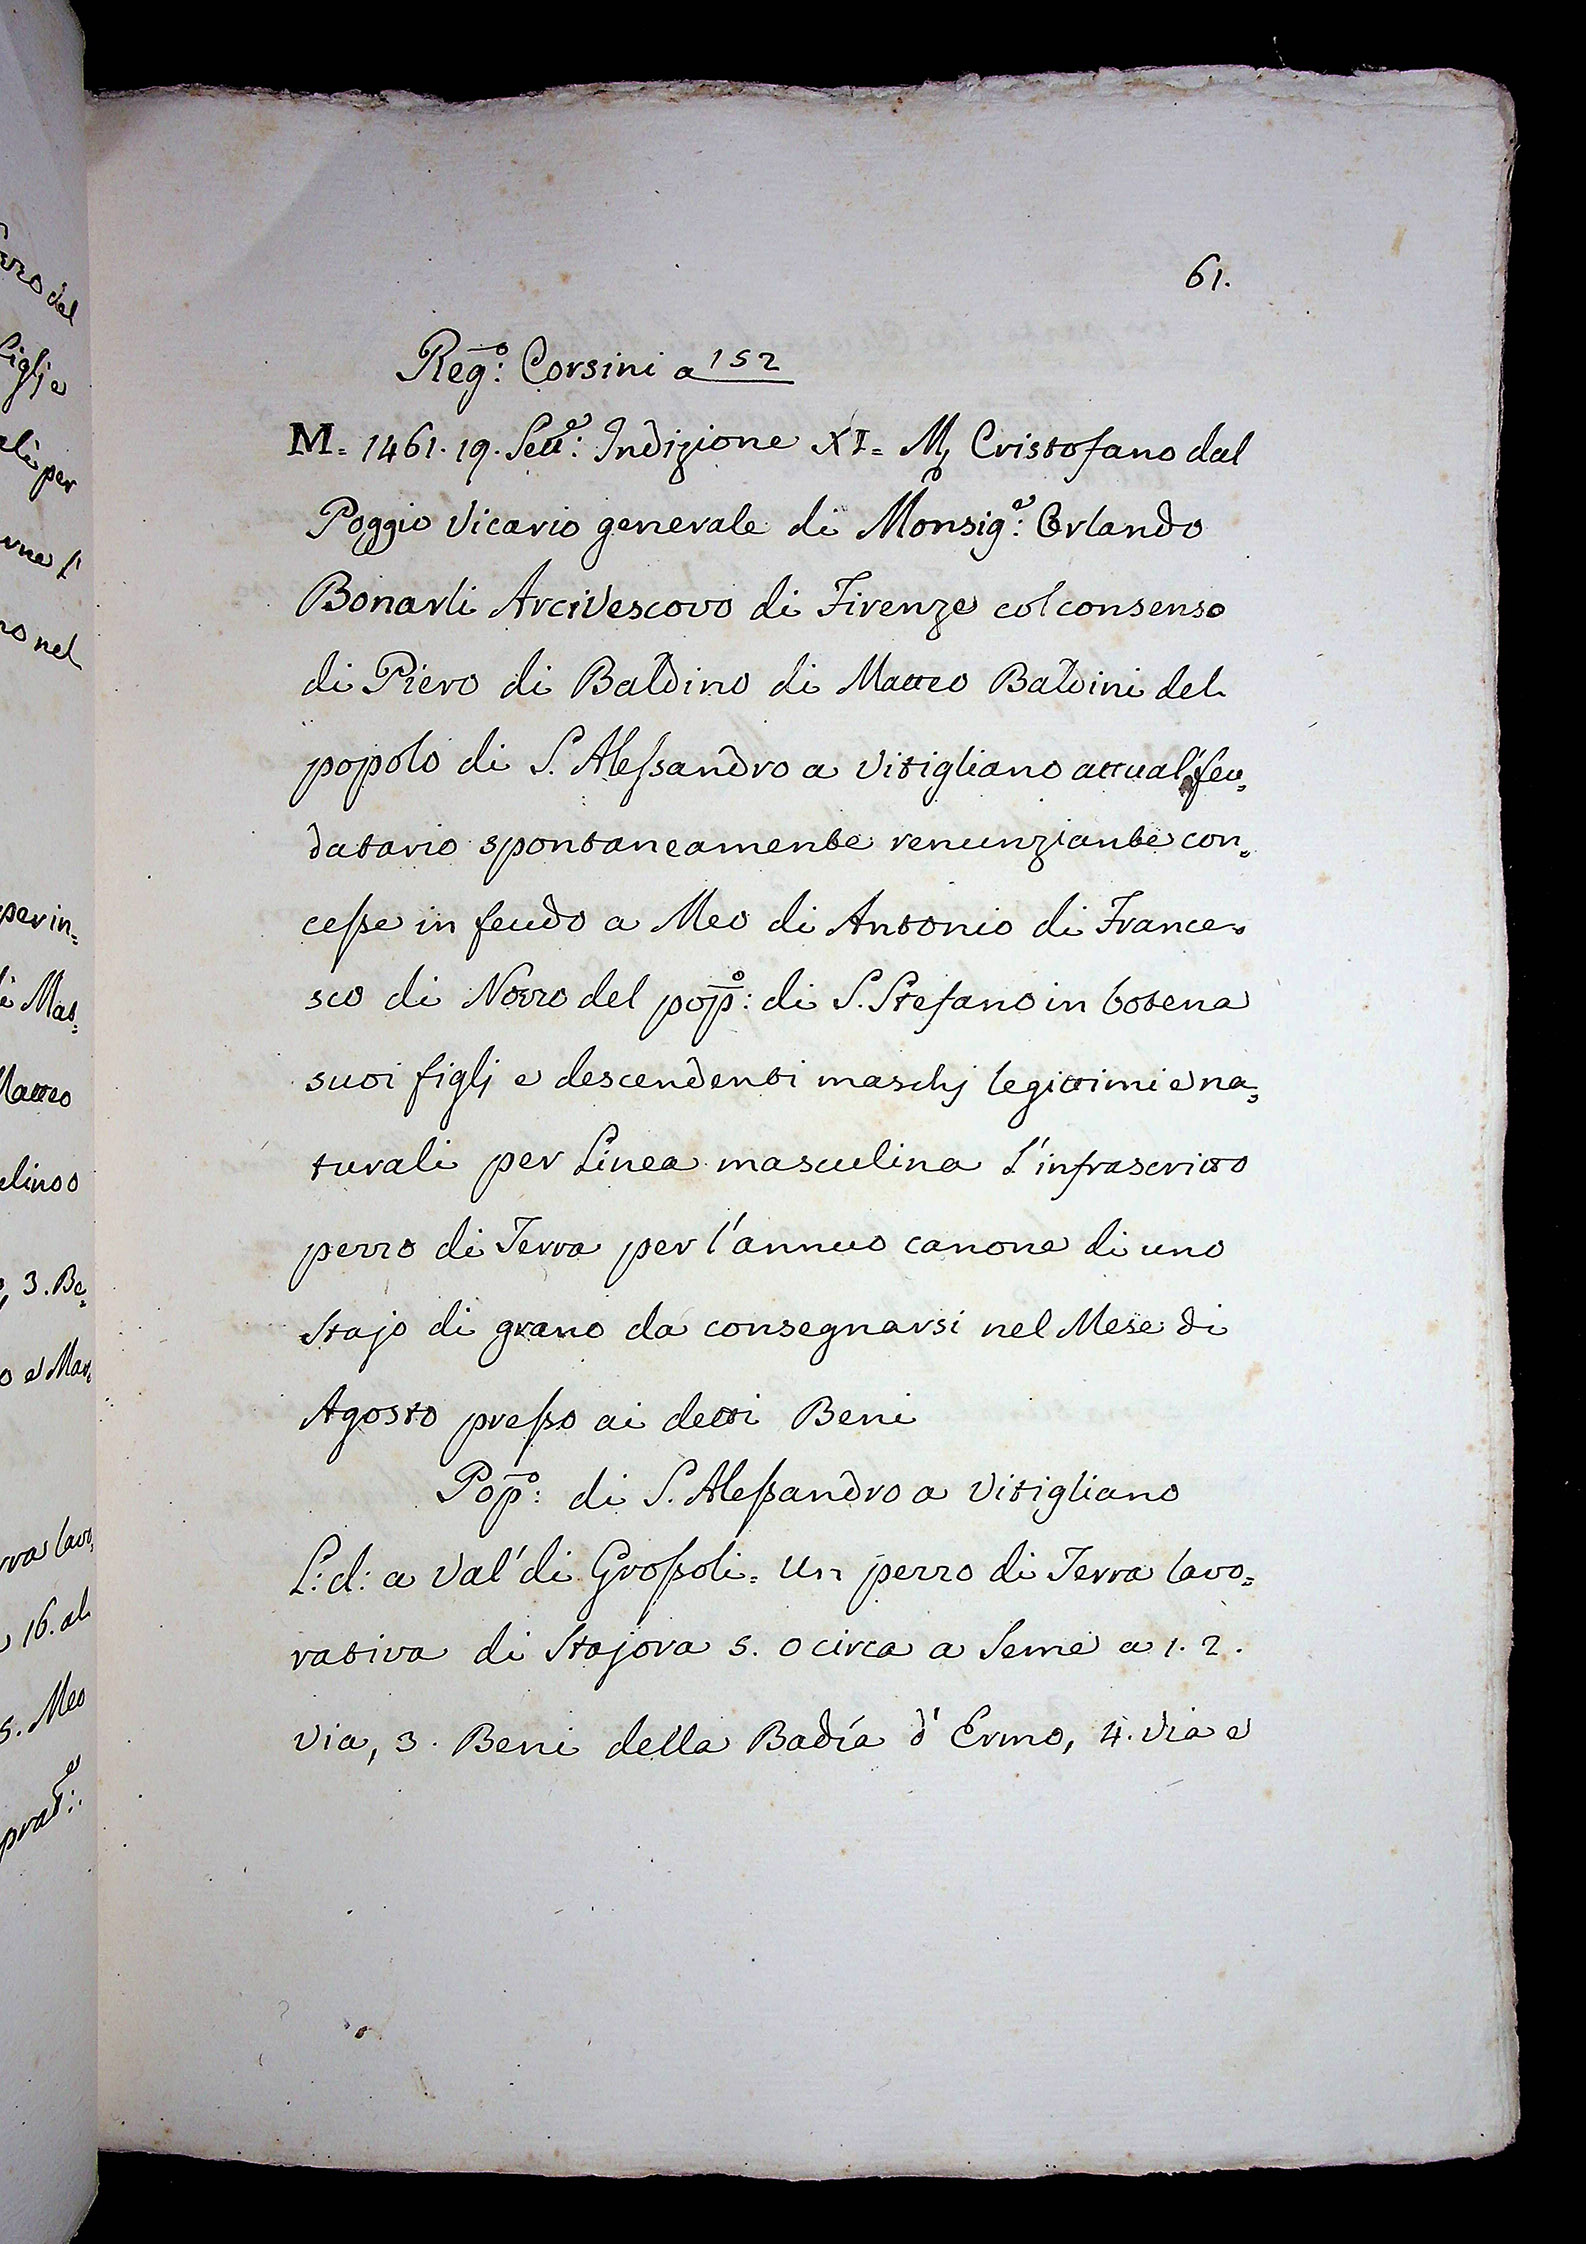 61.
Reg:º Corsini a 152
M. 1461. 19. Indizione XI= M, Cristofano dal
Poggio Vicario generale di Monsig:e Orlando
Bonarli Arcivescovo di Firenze col consenso
di Piero di Baldino di Matteo Baldini del
popolo di S. Alessandro a Vitigliano attual' feu=
datario spontaneamente renunziante con=
cesse in feudo a Meo di Antonio di France=
sco di del pop:º di S. Stefano in botena
suoi figlj e descendenti maschj legittimi e na=
turali per Linea masculina l'infrascritto
pezzo di Terra per l'annuo canone di uno
Stajo di grano da consegnarsi nel Mese di
Agosto presso ai detti Beni
Pop:º di S. Alessandro a Vitigliano
L: d: a Val' di Grossoli= Un pezzo di Terra lavo=
rativa di Stajora 5. o circa a Seme a 1. 2.
via, 3. Beni della Badía d' Ermo, 4. via e
rzo del
Figlj e
alì per
rne l'
no nel
per in=
di Mat=
Matteo
elino o
, 3. Be=
o e Mat=
rra lavo=
16. al
5. Meo